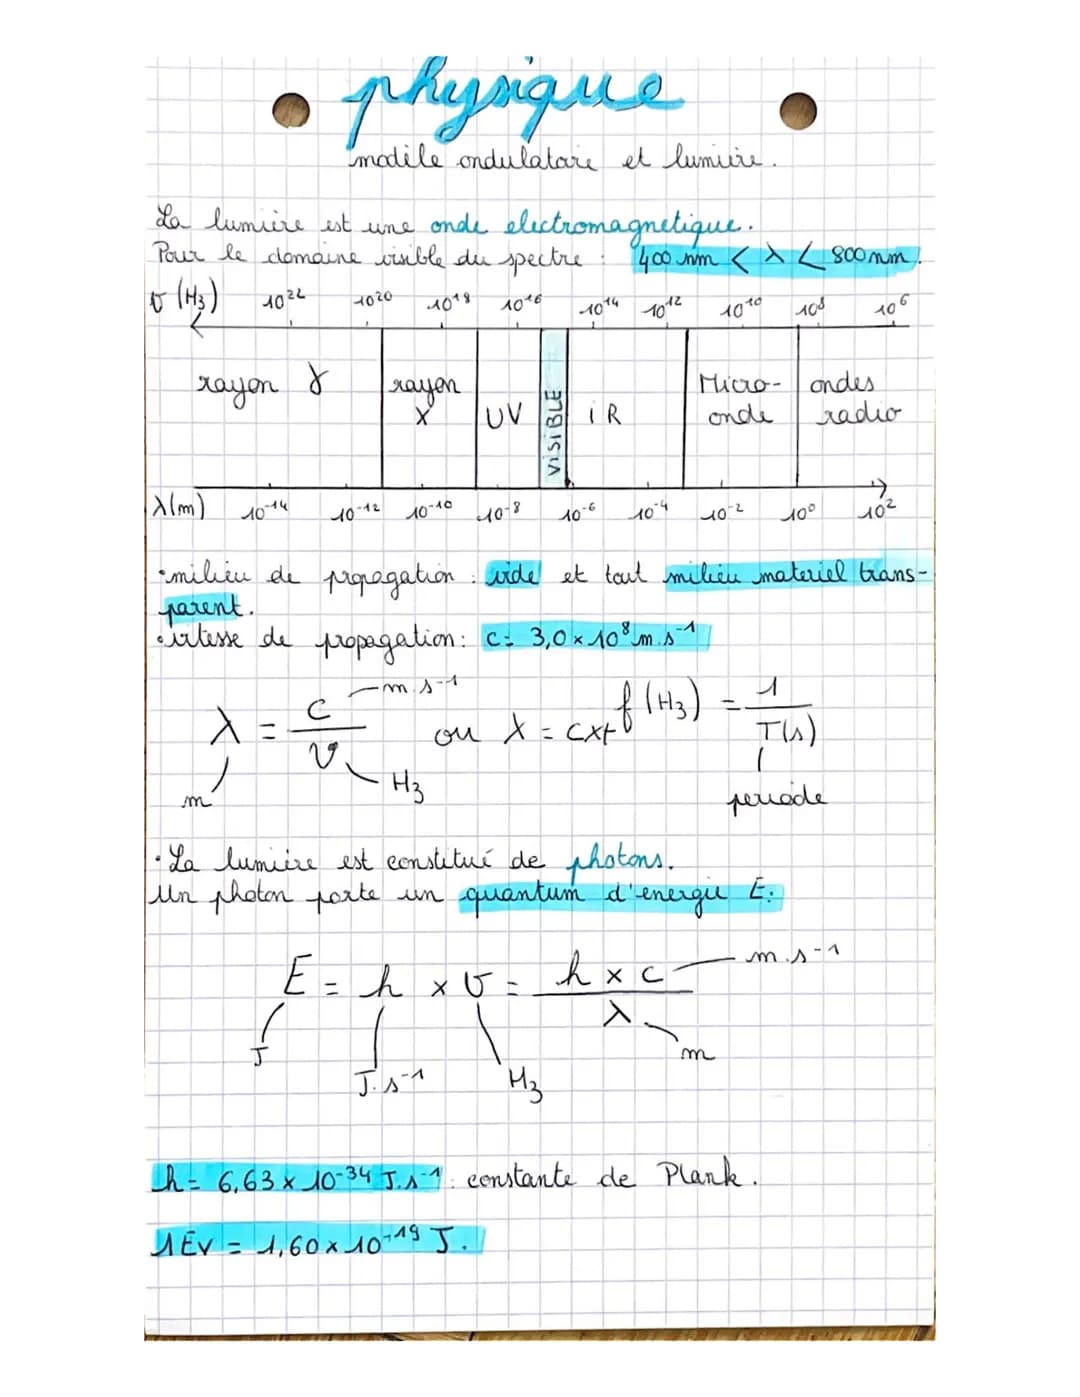 physique
modèle ondulatoire et lumière.
La lumière est une onde electromagnetique.
Pour le domaine visible du spectre : 400 nm < λ < 800 nm.
υ (Hz) 10²² 10²⁰ 10¹⁸ 10¹⁶ 10¹⁴ 10¹² 10¹⁰ 10⁸ 10⁶
rayon γ
rayon X
UV
VISIBLE
iR
Micro-onde
ondes radio
λ(m) 10⁻¹⁴ 10⁻¹² 10⁻¹⁰ 10⁻⁸ 10⁻⁶ 10⁻⁴ 10⁻² 10⁰ 10²
• milieu de propagation : vide et tout milieu materiel trans-
parent.
• vitesse de propagation : c = 3,0 × 10⁸ m.s⁻¹
λ = c / υ ou λ = c×t f (Hz) = 1 / T(s)
m m.s⁻¹ Hz periode
• La lumière est constitué de photons.
Un photon porte un quantum d'energie E:
E = h × υ = h × c / λ
J J.s⁻¹ Hz m.s⁻¹ m
h = 6,63 × 10⁻³⁴ J.s⁻¹ : constante de Plank.
1 Ev = 1,60 × 10⁻¹⁹ J.